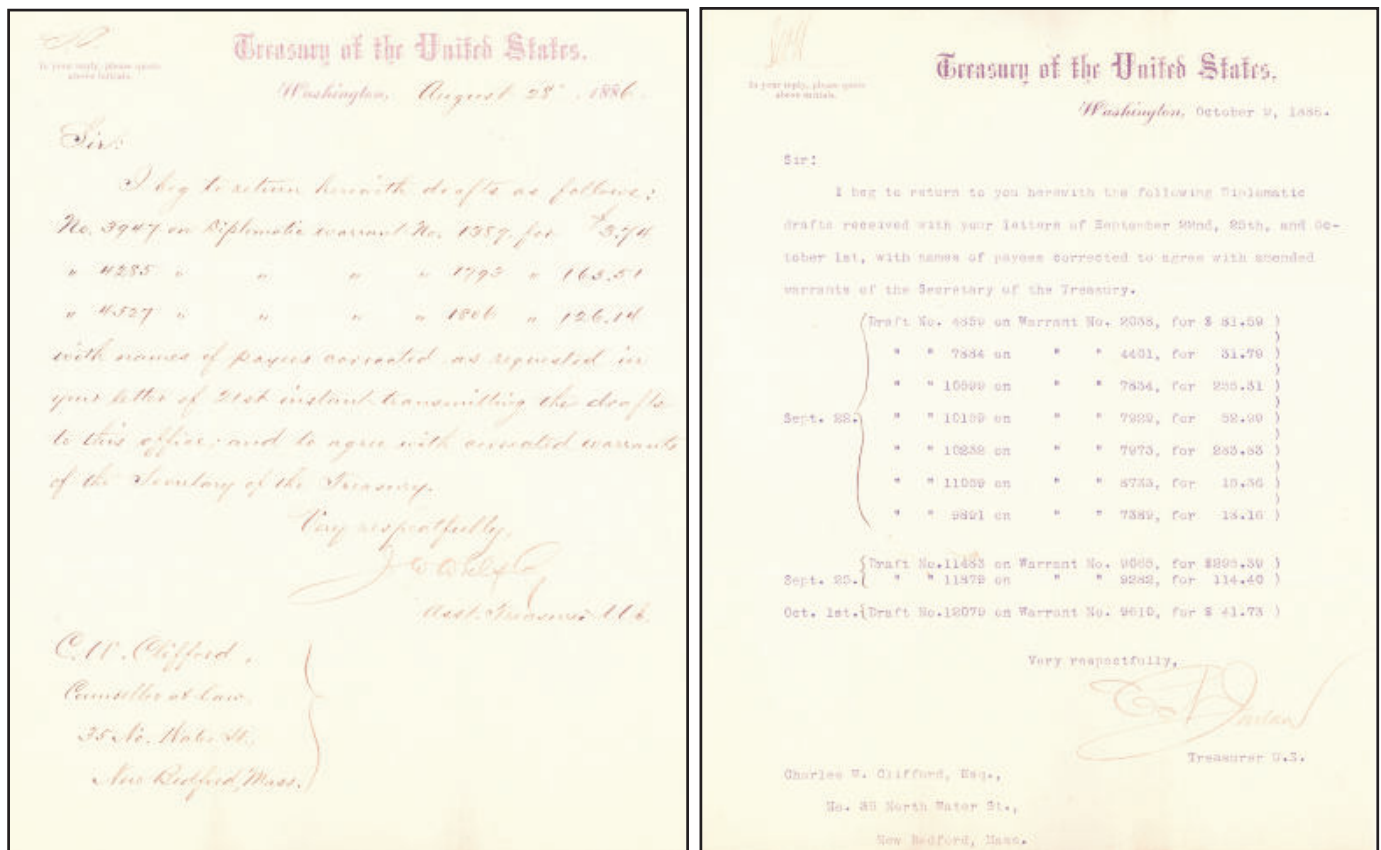 In your reply, please quote
above initials.
Treasury of the United States.
Washington, August 28 1886.
Sir:
I beg to return herewith drafts as follows:
No. 3947 on Diplomatic warrant No. 1389, for $3.74
" 4285 " " " " 1793 " 163.51
" 4527 " " " " 1806 " 126.14
with names of payees corrected as requested in
your letter of 21st instant transmitting the drafts
to this office, and to agree with corrected warrants
of the Secretary of the Treasury.
Very respectfully,
Asst. Treasurer U.S.
C. W. Clifford,
Counsellor at Law
35 No. Water St.,
New Bedford, Mass.
In your reply, please quote
above initials.
Treasury of the United States.
Washington, October 2, 1886.
Sir:
I beg to return to you herewith the following Diplomatic
drafts received with your letters of September 22nd, 25th, and Oc-
tober 1st, with names of payees corrected to agree with amended
warrants of the Secretary of the Treasury.
(Draft No. 4859 on Warrant No. 2038, for $ 81.59 )
" " 7884 on " " 4401, for 31.79 )
" " 10599 on " " 7834, for 255.31 )
Sept. 22. " " 10159 on " " 7929, for 52.99 )
" " 10252 on " " 7973, for 283.83 )
" " 11059 on " " 8733, for 18.36 )
" " 9891 on " " 7389, for 18.16 )
(Draft No. 11483 on Warrant No. 9065, for $295.39 )
Sept. 25.( " " 11879 on " " 9282, for 114.40 )
Oct. 1st.(Draft No. 12079 on Warrant No. 9610, for $ 41.73 )
Very respectfully,
Treasurer U.S.
Charles W. Clifford, Esq.,
No. 35 North Water St.,
New Bedford, Mass.